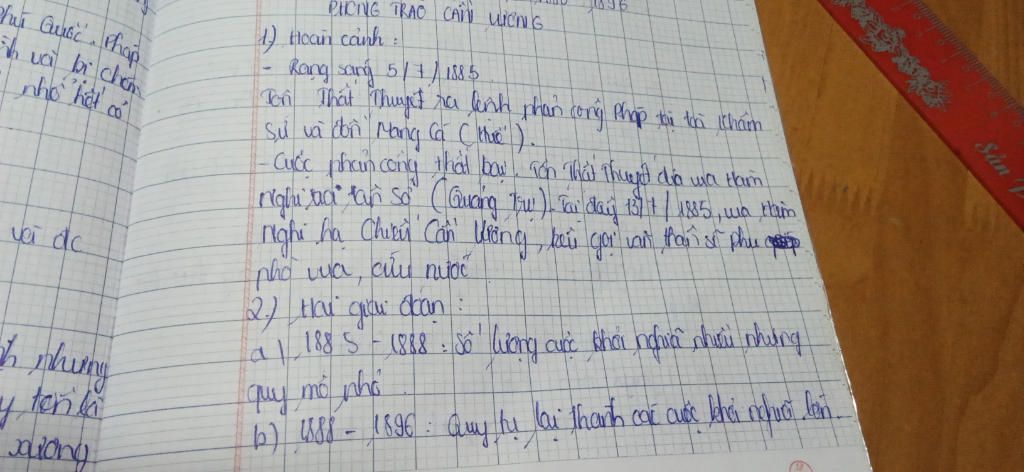 1896
PHONG TRÀO CẦN VƯƠNG
1) Hoàn cảnh :
- Rạng sáng 5/7/1885
Tôn Thất Thuyết ra lệnh phản công Pháp tại tòa Khâm
Sứ và đồn Mang Cá (Huế).
- Cuộc phản công thất bại, Tôn Thất Thuyết đưa vua Hàm
Nghi ra Tân Sở (Quảng Trị). Tại đây 13/7/1885, vua Hàm
Nghi hạ Chiếu Cần Vương, kêu gọi văn thân sĩ phu
phò vua, cứu nước
2.) Hai giai đoạn :
a) 1885 - 1888 : Số lượng cuộc khởi nghĩa nhiều nhưng
quy mô nhỏ.
b) 1888 - 1896 : Quy tụ lại thành các cuộc khởi nghĩa lớn.
Quốc. Pháp
và bị
nhỏ
với đc
nhưng
xương
Sản